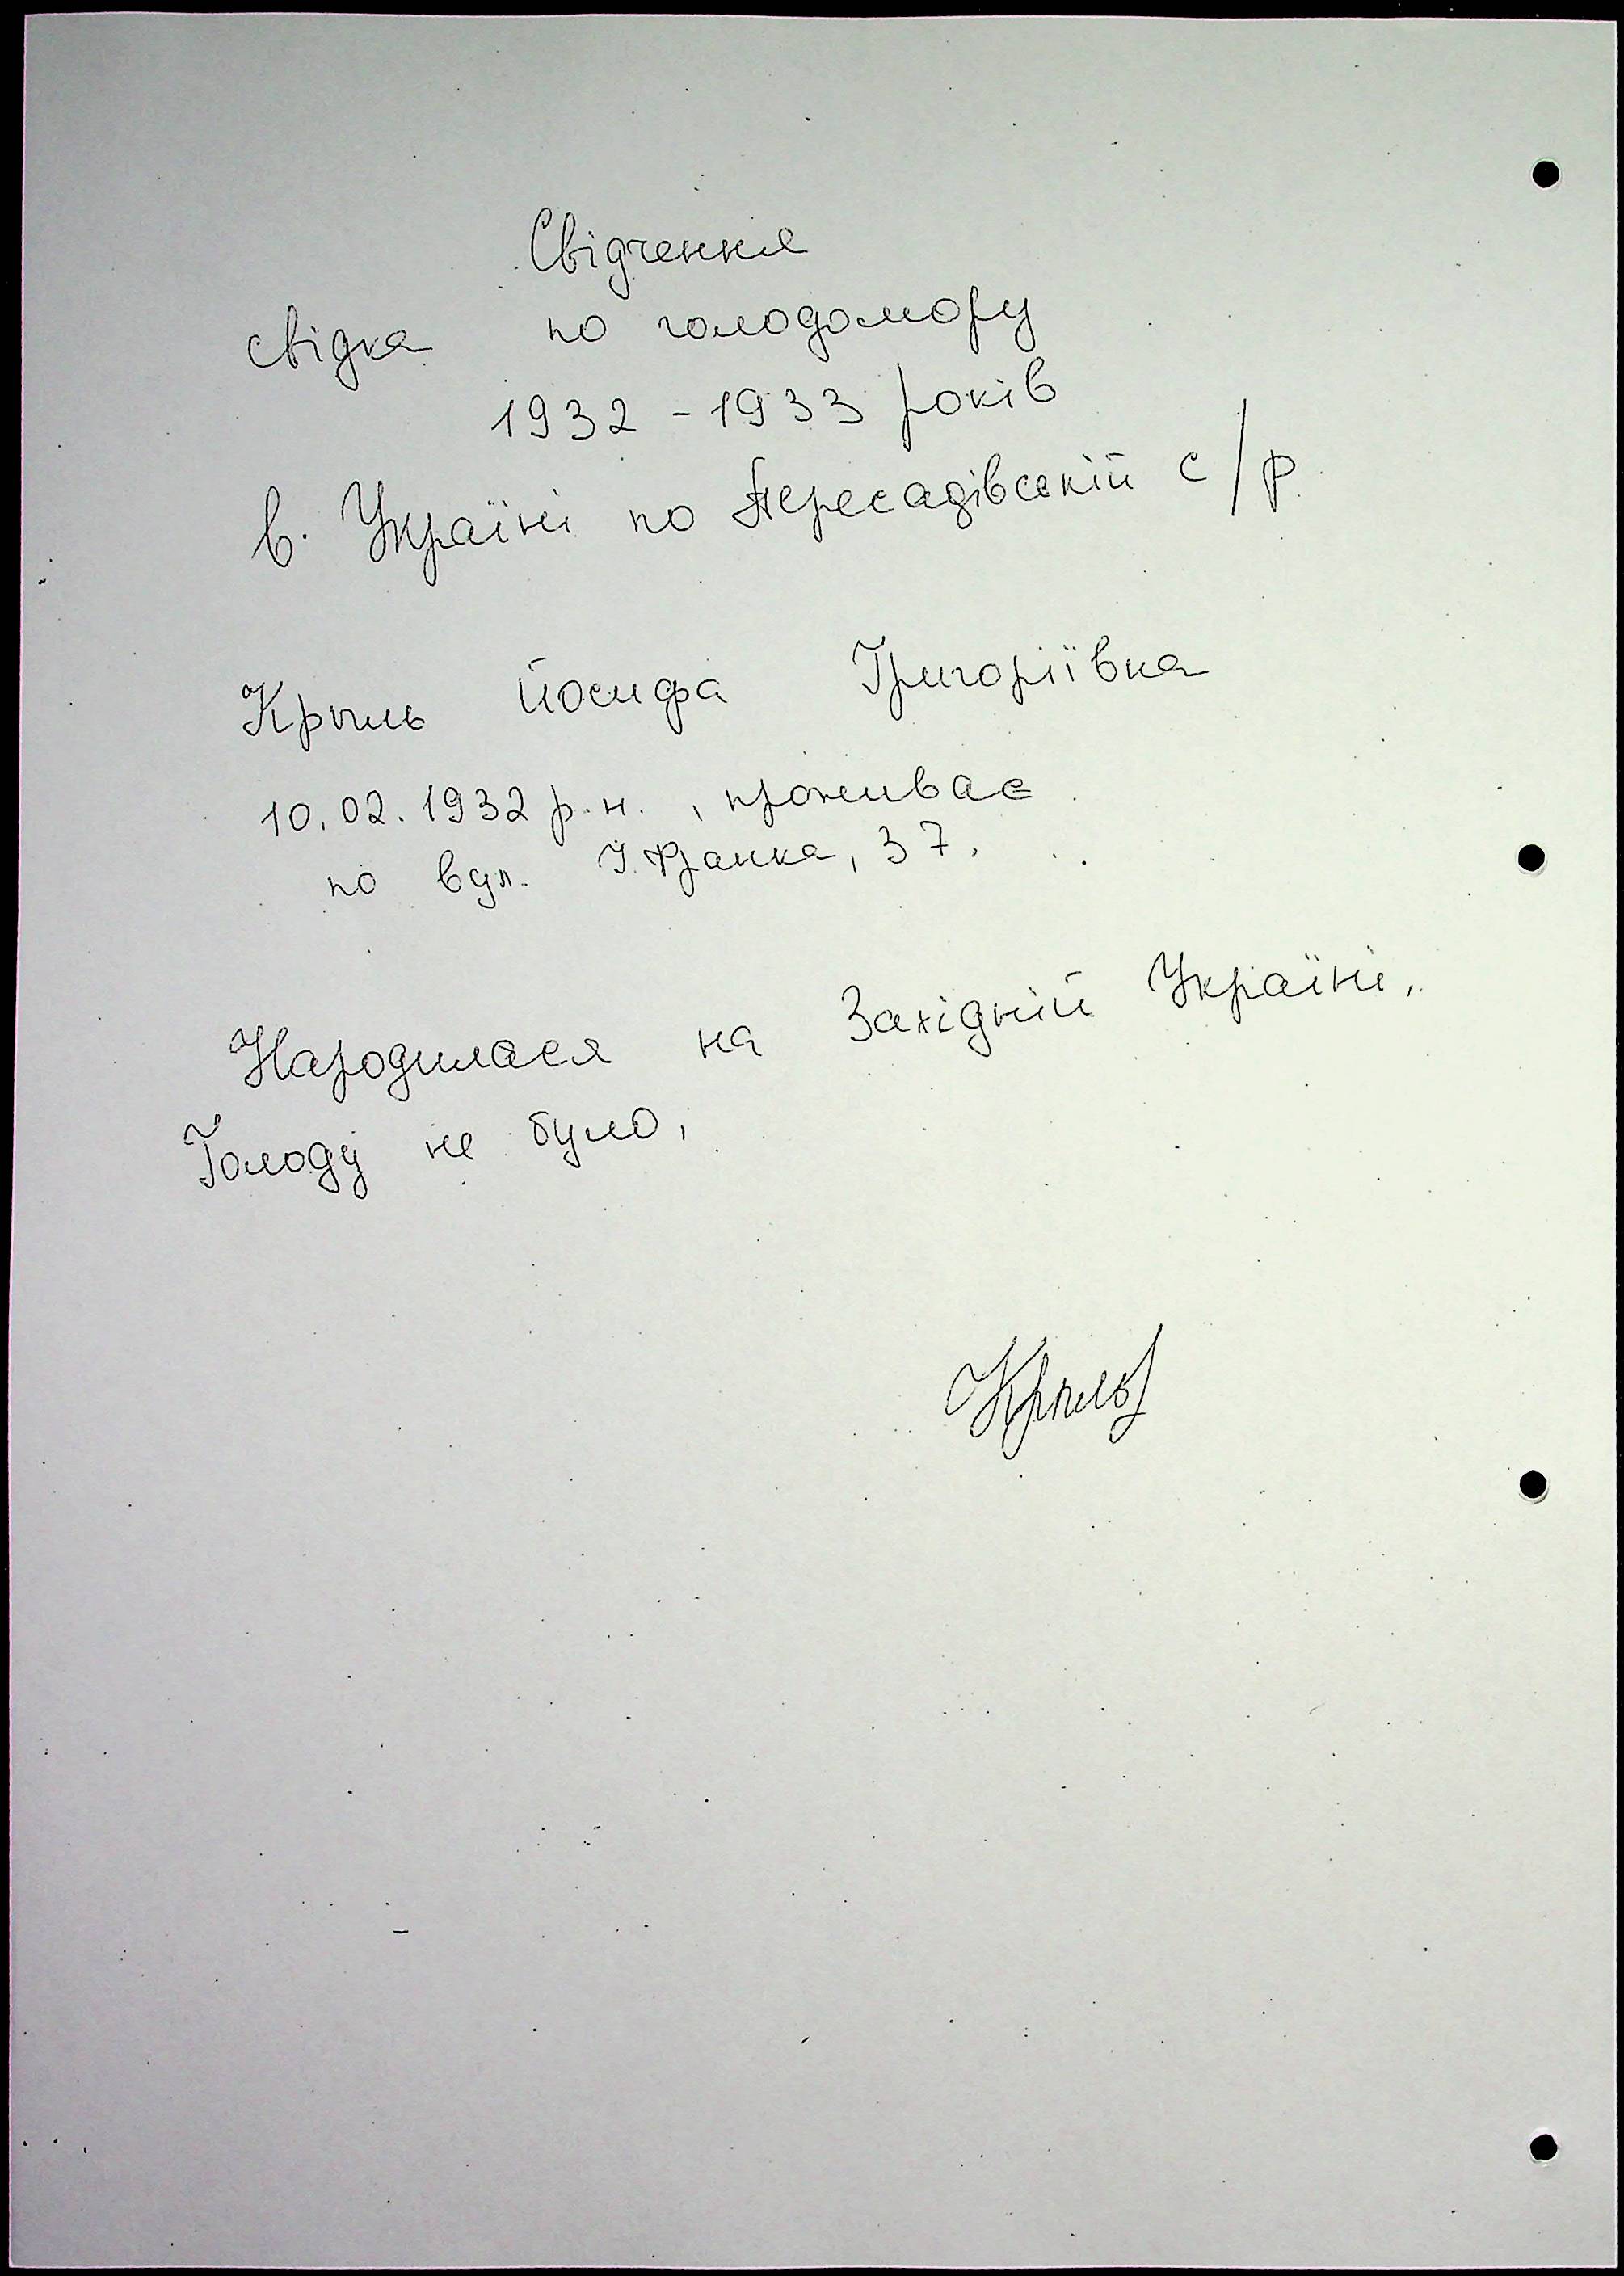 Свідчення
свідка по голодомору
1932 - 1933 років
в. Україні по Пересадівській с/р
Крыль Йосифа Григоріївка
10.02.1932 р.н., проживає
по вул. І. Франка, 37.
Народилася на Західній Україні,
Голоду не було,
Крыль